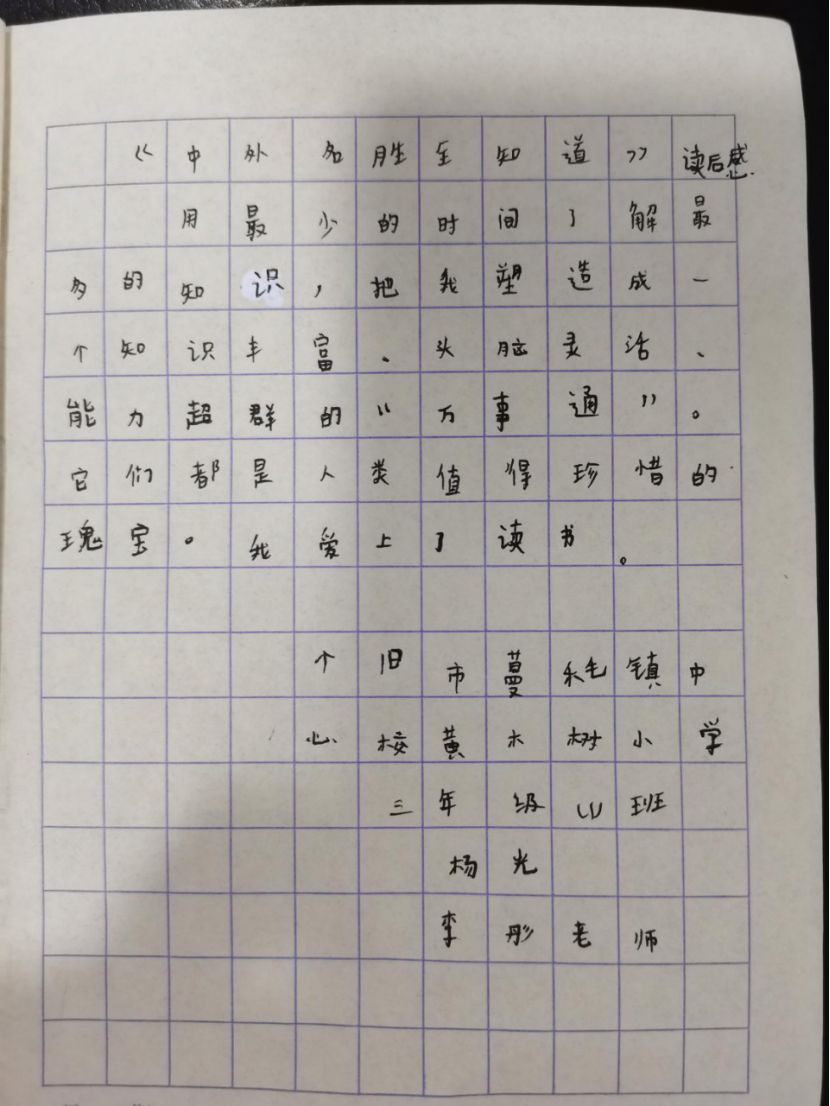 《中外名胜全知道》读后感
用最少的时间了解最
多的知识,把我塑造成一
个知识丰富、头脑灵活、
能力超群的“万事通”。
它们都是人类值得珍惜的
瑰宝。我爱上了读书。
个旧市蔓耗镇中
心校黄木树小学
三年级(1)班
杨光
李彤老师